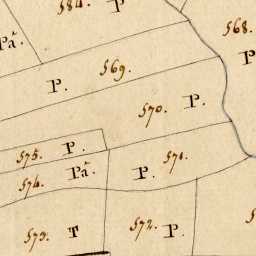 584. P
568.
Pª.
P
569.
P.
570. P.
575. P.
571.
576. Pª. P.
573. T 572. P.